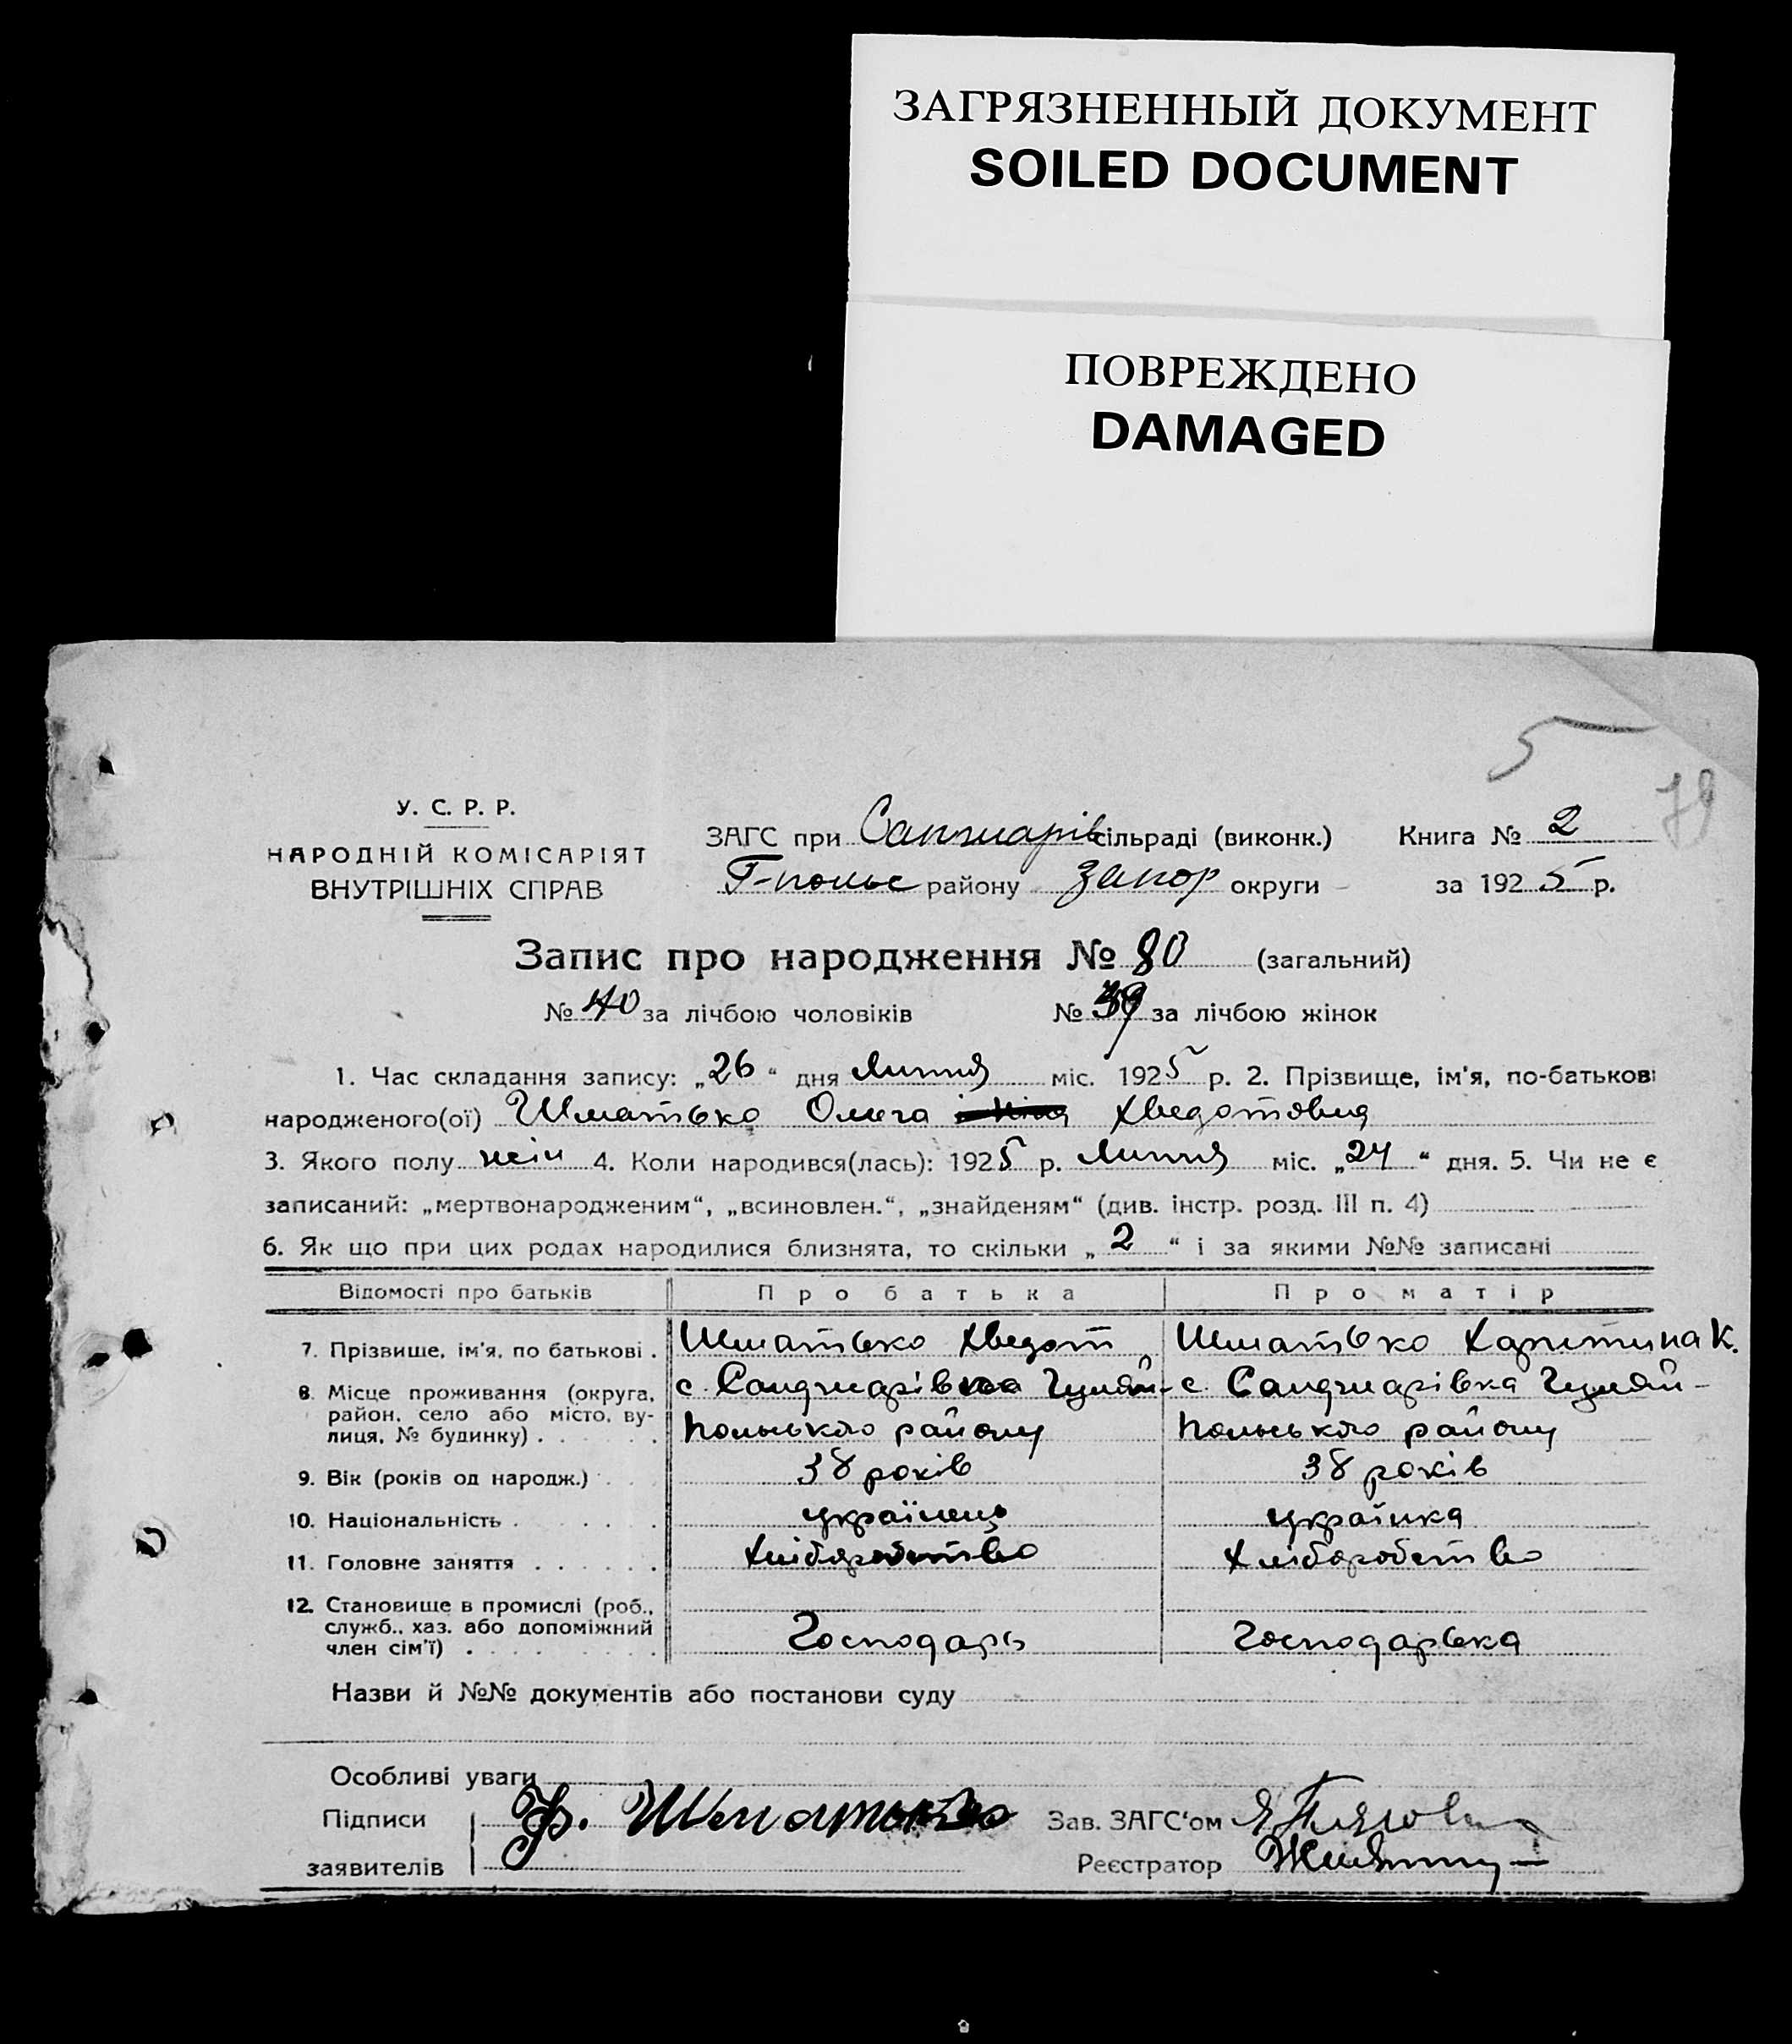 ЗАГРЯЗНЕННЫЙ ДОКУМЕНТ
SOILED DOCUMENT
ПОВРЕЖДЕНО
DAMAGED
5
79
У. С. Р. Р.
НАРОДНІЙ КОМІСАРІЯТ
ВНУТРІШНІХ СПРАВ
ЗАГС при Санжарів сільраді (виконк.) Книга № 2
Г-польс району Запор округи за 1925 р.
Запис про народження № 80 (загальний)
№ 40 за лічбою чоловіків № 39 за лічбою жінок
1. Час складання запису: „26“ дня Липня міс. 1925 р. 2. Прізвище, ім'я, по-батькові
народженого(ої) Шматько Ольга Хведотовна
3. Якого полу жін 4. Коли народився(лась): 1925 р. Липня міс. „24“ дня. 5. Чи не є
записаний: „мертвонародженим“, „всиновлен.“, „знайденям“ (див. інстр. розд. III п. 4)
6. Як що при цих родах народилися близнята, то скільки „2“ і за якими №№ записані
Відомості про батьків Про батька Про матір
7. Прізвише, ім'я, по батькові . Шматько Хведот Шматько Харитина К.
8. Місце проживання (округа, район, село або місто, вулиця, № будинку) . с. Санджарівка Гуляй- с. Санджарівка Гуляй-
польського району польського району
9. Вік (років од народж.) 38 років 38 років
10. Національність . українець українка
11. Головне заняття . хліборобство хліборобство
12. Становище в промислі (роб., служб., хаз. або допоміжний член сім'ї) . Господарь господарька
Назви й №№ документів або постанови суду
Особливі уваги
Підписи Ф. Шматько Зав. ЗАГС'ом
заявителів Реєстратор